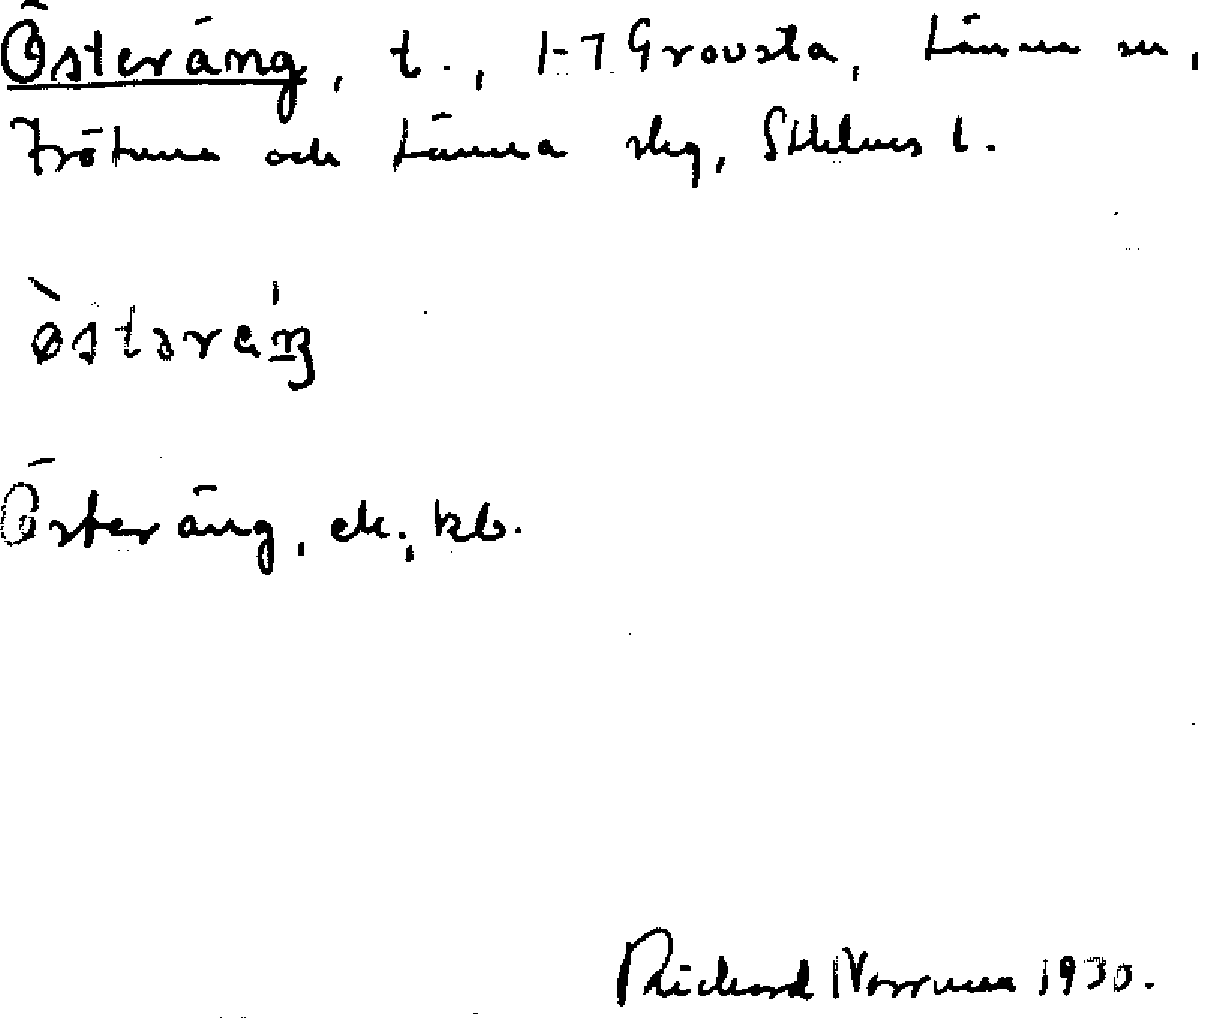 Österäng, t., 1-7 Grovsta, Länna sn,
Frötuna och Länna slg, Sthlms l.
østəräŋ
Österäng, ek., kb.
Richard Norrman 1930.